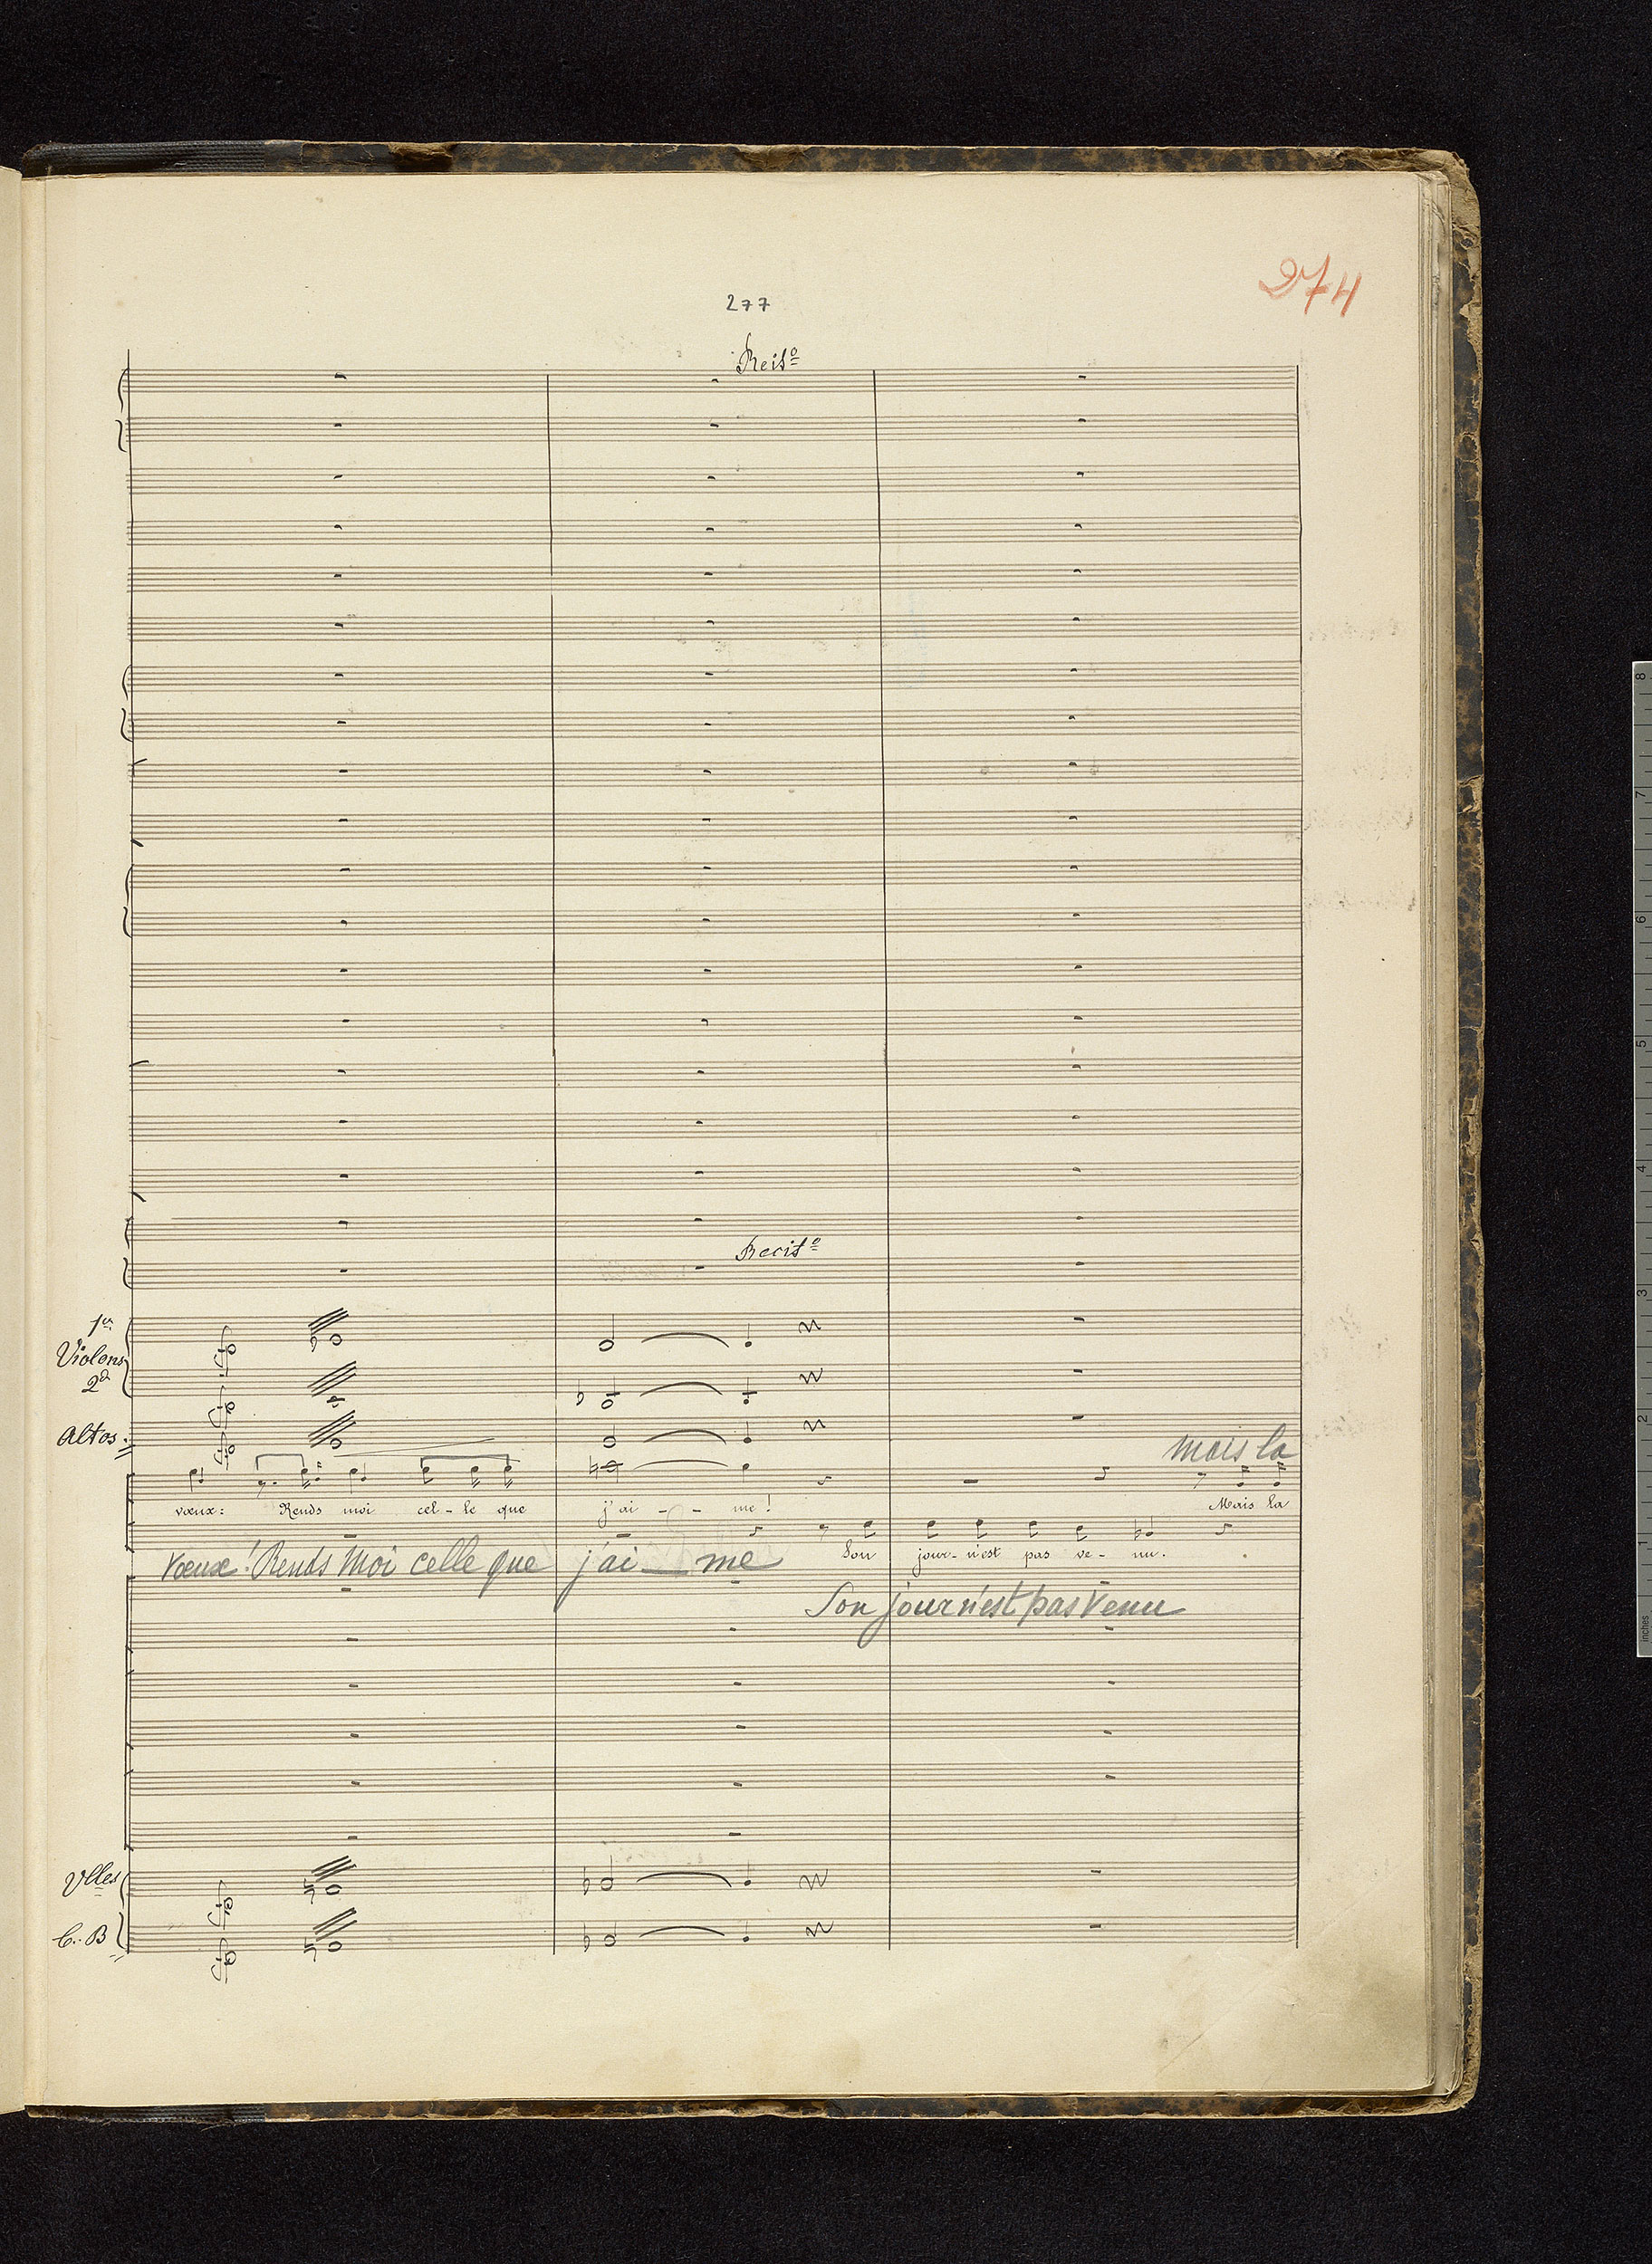 274
277
Recit⁰
Recit⁰
1ers
Violons
2ds
Altos
mais la
vœux: Rends moi cel-le que j'ai - - me! Mais la
Son jour n'est pas ve- nu.
vœux! Rends moi celle que j'ai — me
Son jour n'est pas venu
Vlles
C.B
8
7
6
5
4
3
2
1
inches